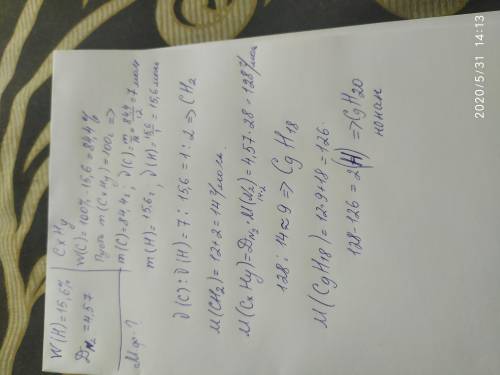 W(H)=15,6%
D N₂ = 4,57
М.ф-?
CxHy
W(C)=100%-15,6=84,4%
Пусть m(CxHy)=100г =>
m(C)=84,4г; ν(C)=m/M=84,4/12=7моль
m(H)=15,6г; ν(H)=15,6/1=15,6моль
ν(C):ν(H)=7:15,6=1:2 => CH₂
M(CH₂)=12+2=14г/моль
M(CxHy)=D N₂·M(N₂)=4,57·28=128г/моль
14·2
128:14≈9 => C₉H₁₈
M(C₉H₁₈)=12·9+18=126
128-126=2(H) => C₉H₂₀
нонан
2020/5/31 14:13